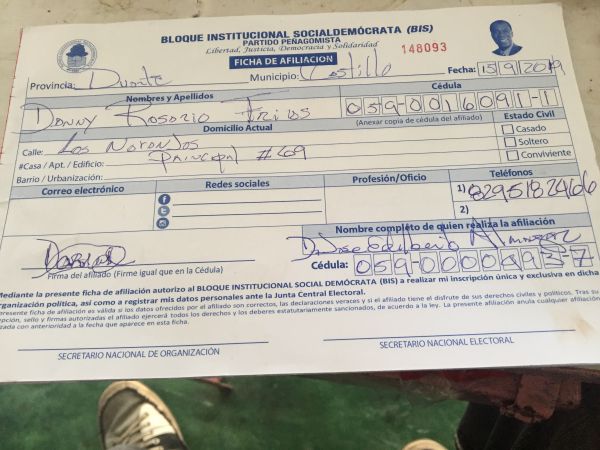 BLOQUE INSTITUCIONAL SOCIALDEMÓCRATA (BIS)
PARTIDO PEÑAGOMISTA
Libertad, Justicia, Democracia y Solidaridad
FICHA DE AFILIACIÓN
148093
Provincia: Duarte Municipio: Castillo Fecha: 15/9/2019
Nombres y Apellidos Cédula
Danny Rosorio Frias 059-0016091-1
(Anexar copia de cédula del afiliado)
Domicilio Actual Estado Civil
Calle: Los Casado
#Casa / Apt. / Edificio: principal #269 Soltero
Barrio / Urbanización: Conviviente
Correo electrónico Redes sociales Profesión/Oficio Teléfonos
1) 8295182466
2)
Nombre completo de quien realiza la afiliación
D. Jose Edilberto Almanzar
Firma del afiliado (Firme igual que en la Cédula) Cédula: 059-0000493-7
Mediante la presente ficha de afiliación autorizo al BLOQUE INSTITUCIONAL SOCIAL DEMÓCRATA (BIS) a realizar mi inscripción única y exclusiva en dicha
organización política, así como a registrar mis datos personales ante la Junta Central Electoral.
presente ficha de afiliación es válida si los datos ofrecidos por el afiliado son correctos, las declaraciones veraces y si el afiliado tiene el disfrute de sus derechos civiles y políticos. Tras su
pción, sello y firmas autorizadas el afiliado ejercerá todos los derechos y los deberes estatutariamente sancionados, de acuerdo a la ley. La presente afiliación anula cualquier afiliación
zada con anterioridad a la fecha que aparece en esta ficha.
SECRETARIO NACIONAL DE ORGANIZACIÓN SECRETARIO NACIONAL ELECTORAL